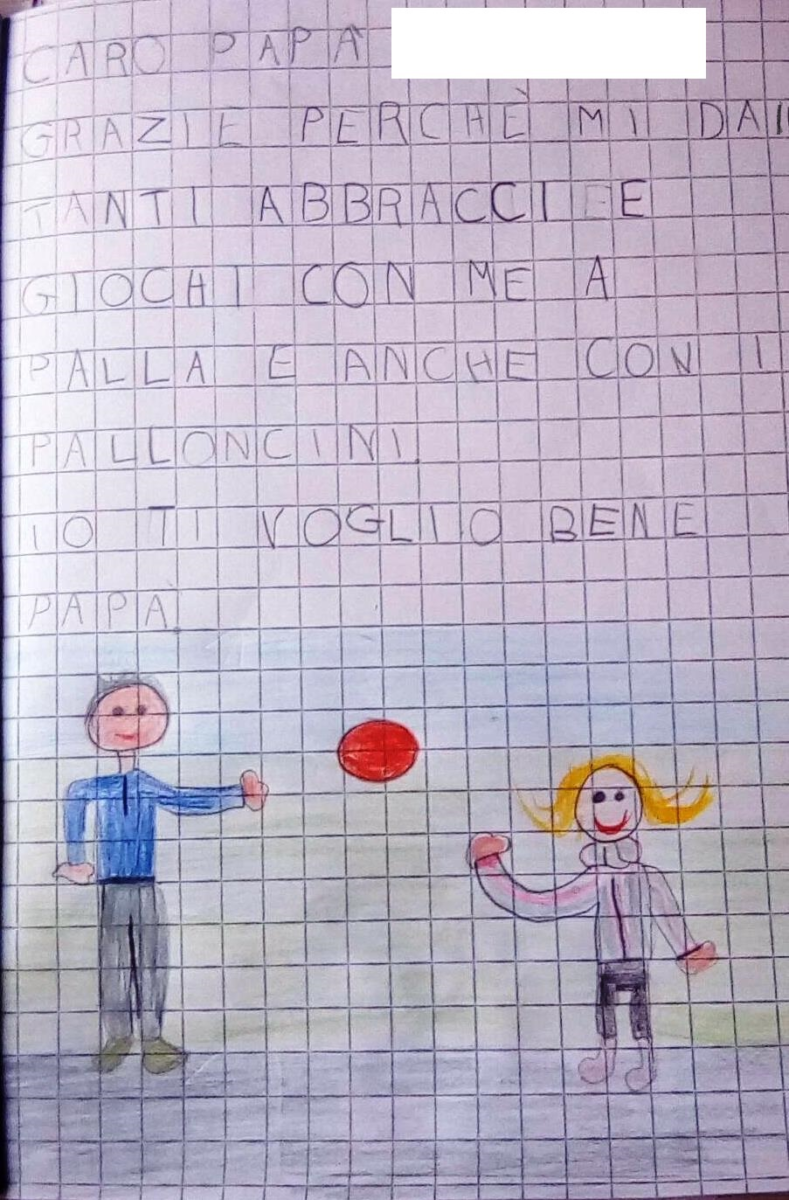 CARO PAPÀ
GRAZIE PERCHÈ MI DAI
TANTI ABBRACCI E E
GIOCHI CON ME A
PALLA E ANCHE CON I
PALLONCINI.
IO TI VOGLIO BENE
PAPÀ.